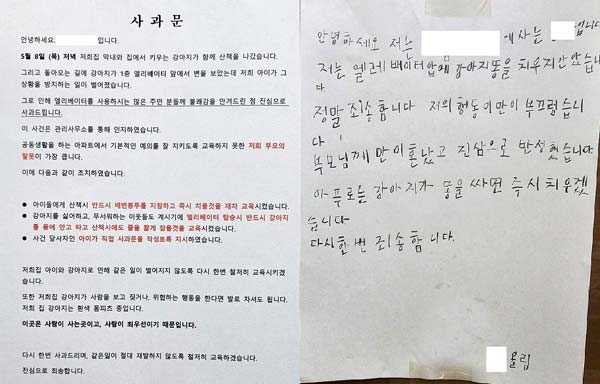 사 과 문
안녕하세요 입니다.
5월 8일 (목) 저녁 저희집 막내와 집에서 키우는 강아지가 함께 산책을 나갔습니다.
그리고 돌아오는 길에 강아지가 1층 엘리베이터 앞에서 변을 보았는데 저희 아이가 그
상황을 방치하는 일이 벌어졌습니다.
그로 인해 엘리베이터를 사용하시는 많은 주민 분들께 불쾌감을 안겨드린 점 진심으로
사과드립니다.
이 사건은 관리사무소를 통해 인지하였습니다.
공동생활을 하는 아파트에서 기본적인 예의를 잘 지키도록 교육하지 못한 저희 부모의
잘못이 가장 큽니다.
이에 다음과 같이 조치하였습니다.
● 아이들에게 산책시 반드시 배변봉투를 지참하고 즉시 치울것을 재차 교육시켰습니다.
● 강아지를 싫어하고, 무서워하는 이웃들도 계시기에 엘리베이터 탑승시 반드시 강아지
를 품에 안고 타고 산책시에도 줄을 짧게 잡을것을 교육시켰습니다.
● 사건 당사자인 아이가 직접 사과문을 작성토록 지시하였습니다.
저희집 아이와 강아지로 인해 같은 일이 벌어지지 않도록 다시 한번 철저히 교육시키겠
습니다.
또한 저희집 강아지가 사람을 보고 짖거나, 위협하는 행동을 한다면 발로 차셔도 됩니다.
저희 집 강아지는 흰색 폼피츠 종입니다.
이곳은 사람이 사는곳이고, 사람이 최우선이기 때문입니다.
다시 한번 사과드리며, 같은일이 절대 재발하지 않도록 철저히 교육하겠습니다.
진심으로 죄송합니다.
안녕하세요 저는 에사는 입니다
저는 엘레베이터앞에강아지똥을 치우지안았습니
다
정말 죄송합니다 저의행동이만이부끄럽습니
다
부모님께 만이혼났고 진심으로 반성했습니다
아푸로는 강아지가 똥을 싸면 즉시 치우겠
습니다
다시한번 죄송합니다.
올림